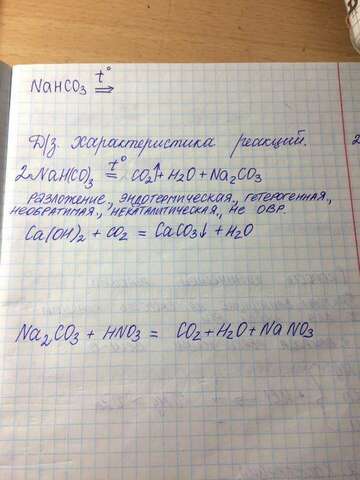 NaHCO₃ t° ⇒
Д/з. характеристика реакций.
2NaHCO₃ t° = CO₂↑ + H₂O + Na₂CO₃
разложение., эндотермическая., гетерогенная.,
необратимая., некаталитическая., не ОВР.
Ca(OH)₂ + CO₂ = CaCO₃↓ + H₂O
Na₂CO₃ + HNO₃ = CO₂ + H₂O + NaNO₃